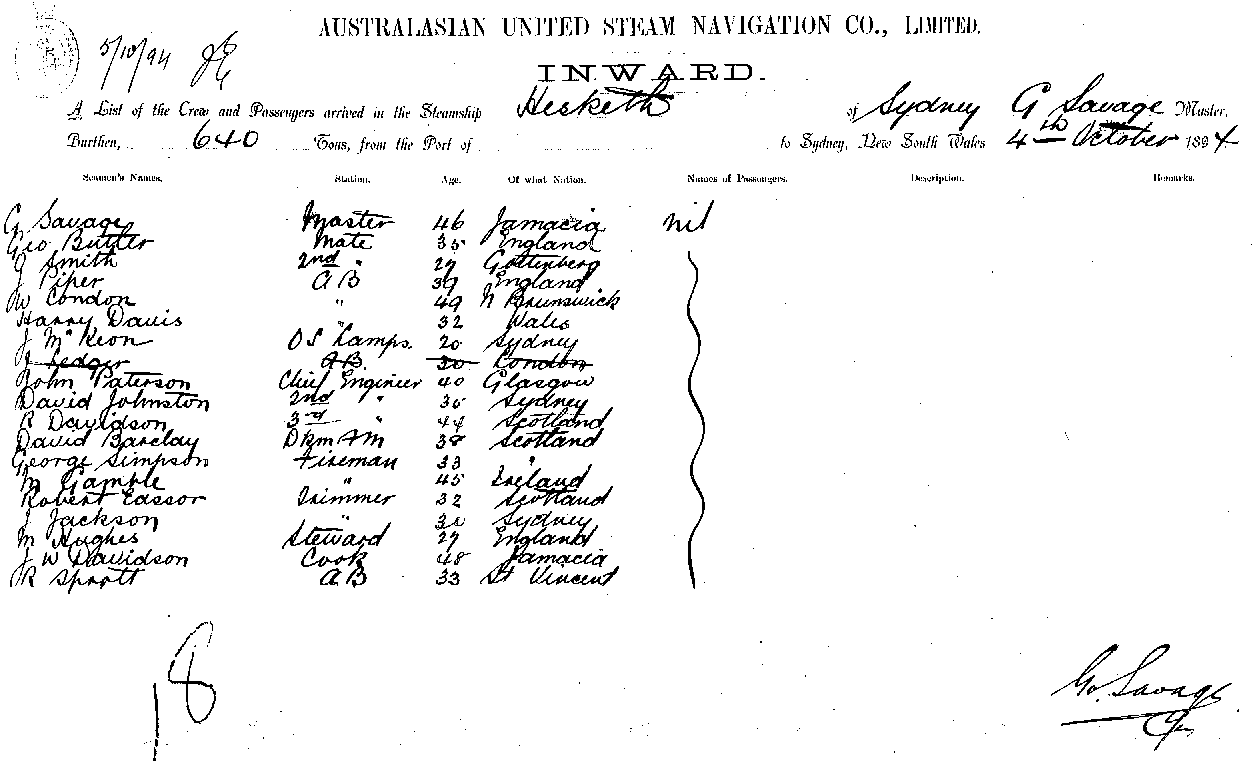 5/10/94
AUSTRALASIAN UNITED STEAM NAVIGATION CO., LIMITED.
INWARD.
A List of the Crew and Passengers arrived in the Steamship Hesketh of Sydney G Savage Master,
Burthen, 640 Tons, from the Port of to Sydney, New South Wales 4th October 1894
Seamen's Names. Station. Age. Of what Nation. Names of Passengers. Description. Remarks.
G Savage Master 46 Jamacia nil
Geo Butler Mate 35 England
J Smith 2nd " 27 Gottenberg
J Piper AB 39 England
W Condon " 49 N Brunswick
Harry Davis " 32 Wales
J McKeon OS Lamps. 20 Sydney
J Ledger AB 30 London
John Paterson Chief Engineer 40 Glasgow
David Johnston 2nd " 35 Sydney
R Davidson 3rd " 44 Scotland
David Barclay Dkm FM 38 Scotland
George Simpson Fireman 33 "
M Gamble " 45 Ireland
Robert Eassor Trimmer 32 Scotland
J Jackson " 30 Sydney
M Hughes Steward 27 England
J W Davidson Cook 48 Jamacia
R Sprott AB 33 St Vincent
18
Go. Savage